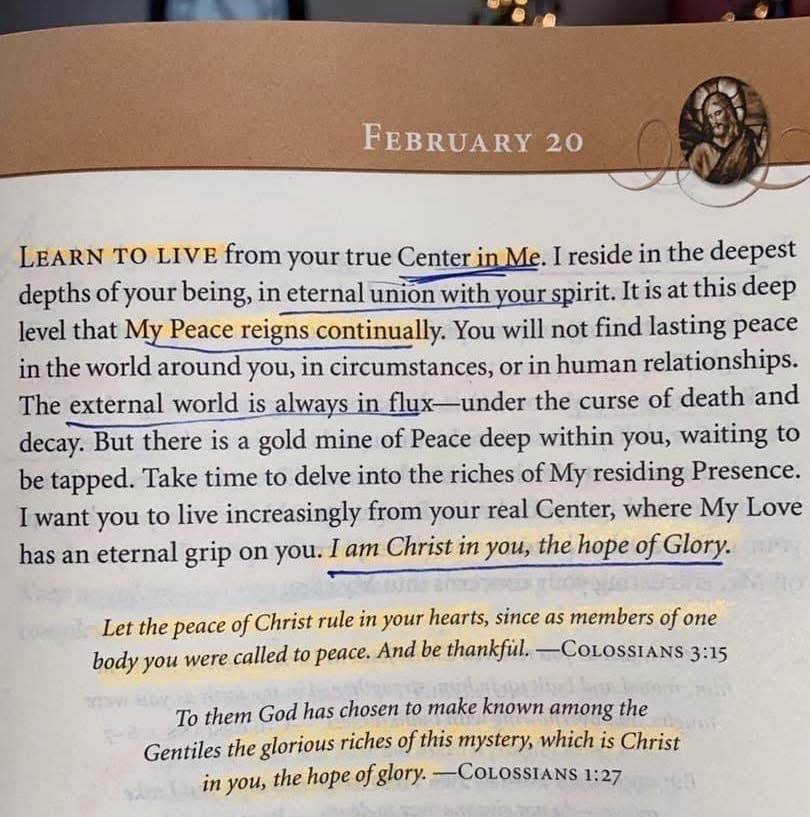 FEBRUARY 20
LEARN TO LIVE from your true Center in Me. I reside in the deepest
depths of your being, in eternal union with your spirit. It is at this deep
level that My Peace reigns continually. You will not find lasting peace
in the world around you, in circumstances, or in human relationships.
The external world is always in flux—under the curse of death and
decay. But there is a gold mine of Peace deep within you, waiting to
be tapped. Take time to delve into the riches of My residing Presence.
I want you to live increasingly from your real Center, where My Love
has an eternal grip on you. I am Christ in you, the hope of Glory.
Let the peace of Christ rule in your hearts, since as members of one
body you were called to peace. And be thankful. —COLOSSIANS 3:15
To them God has chosen to make known among the
Gentiles the glorious riches of this mystery, which is Christ
in you, the hope of glory. —COLOSSIANS 1:27